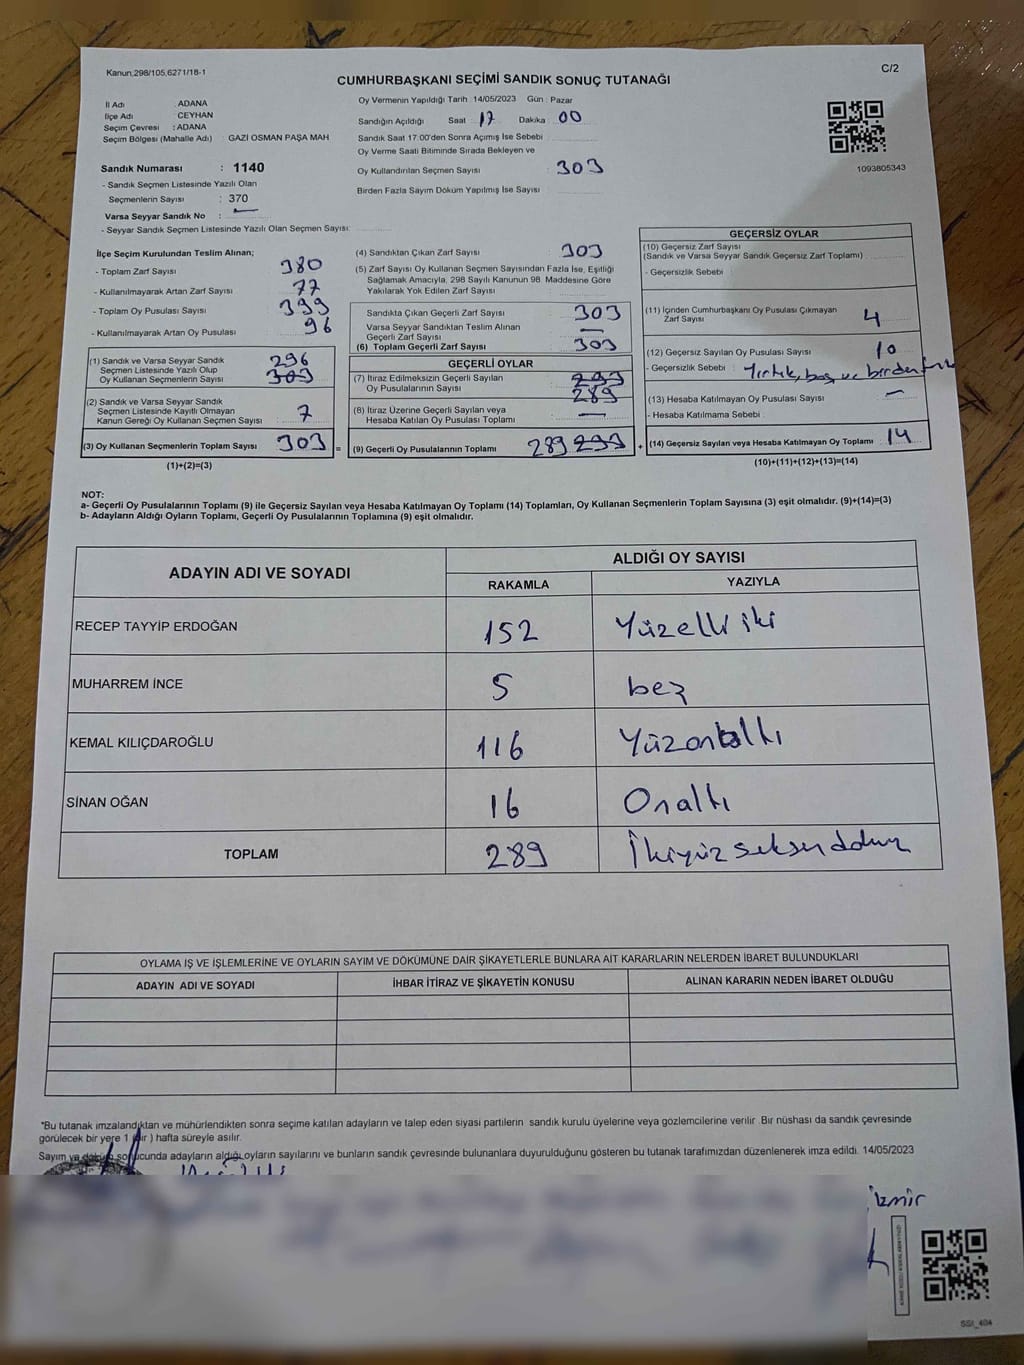 Kanun;298/105,6271/18-1
C/2
CUMHURBAŞKANI SEÇİMİ SANDIK SONUÇ TUTANAĞI
İl Adı : ADANA
İlçe Adı : CEYHAN
Seçim Çevresi : ADANA
Seçim Bölgesi (Mahalle Adı) GAZİ OSMAN PAŞA MAH
Sandık Numarası : 1140
- Sandık Seçmen Listesinde Yazılı Olan
Seçmenlerin Sayısı : 370
Varsa Seyyar Sandık No : —
- Seyyar Sandık Seçmen Listesinde Yazılı Olan Seçmen Sayısı:
Oy Vermenin Yapıldığı Tarih : 14/05/2023 Gün : Pazar
Sandığın Açıldığı Saat 17 Dakika : 00
Sandık Saat 17:00'den Sonra Açımış İse Sebebi :
Oy Verme Saati Bitiminde Sırada Bekleyen ve
Oy Kullandırılan Seçmen Sayısı : 303
Birden Fazla Sayım Döküm Yapılmış İse Sayısı :
1093805343
İlçe Seçim Kurulundan Teslim Alınan;
- Toplam Zarf Sayısı : 380
- Kullanılmayarak Artan Zarf Sayısı : 77
- Toplam Oy Pusulası Sayısı : 399
- Kullanılmayarak Artan Oy Pusulası : 96
(1) Sandık ve Varsa Seyyar Sandık
Seçmen Listesinde Yazılı Olup
Oy Kullanan Seçmenlerin Sayısı 296 303
(2) Sandık ve Varsa Seyyar Sandık
Seçmen Listesinde Kayıtlı Olmayan
Kanun Gereği Oy Kullanan Seçmen Sayısı : 7
(3) Oy Kullanan Seçmenlerin Toplam Sayısı : 303 =
(1)+(2)=(3)
(4) Sandıktan Çıkan Zarf Sayısı : 303
(5) Zarf Sayısı Oy Kullanan Seçmen Sayısından Fazla İse, Eşitliği
Sağlamak Amacıyla, 298 Sayılı Kanunun 98. Maddesine Göre
Yakılarak Yok Edilen Zarf Sayısı :
Sandıkta Çıkan Geçerli Zarf Sayısı : 303
Varsa Seyyar Sandıktan Teslim Alınan
Geçerli Zarf Sayısı : —
(6) Toplam Geçerli Zarf Sayısı : 303
GEÇERLİ OYLAR
(7) İtiraz Edilmeksizin Geçerli Sayılan
Oy Pusulalarının Sayısı : 293 289
(8) İtiraz Üzerine Geçerli Sayılan veya
Hesaba Katılan Oy Pusulası Toplamı : —
(9) Geçerli Oy Pusulalarının Toplamı : 289 293 +
GEÇERSİZ OYLAR
(10) Geçersiz Zarf Sayısı
(Sandık ve Varsa Seyyar Sandık Geçersiz Zarf Toplamı) :
- Geçersizlik Sebebi :
(11) İçinden Cumhurbaşkanı Oy Pusulası Çıkmayan
Zarf Sayısı : 4
(12) Geçersiz Sayılan Oy Pusulası Sayısı : 10
- Geçersizlik Sebebi : Yırtık, boş ve birden
(13) Hesaba Katılmayan Oy Pusulası Sayısı : —
- Hesaba Katılmama Sebebi :
(14) Geçersiz Sayılan veya Hesaba Katılmayan Oy Toplamı : 14
(10)+(11)+(12)+(13)=(14)
NOT:
a- Geçerli Oy Pusulalarının Toplamı (9) ile Geçersiz Sayılan veya Hesaba Katılmayan Oy Toplamı (14) Toplamları, Oy Kullanan Seçmenlerin Toplam Sayısına (3) eşit olmalıdır. (9)+(14)=(3)
b- Adayların Aldığı Oyların Toplamı, Geçerli Oy Pusulalarının Toplamına (9) eşit olmalıdır.
ADAYIN ADI VE SOYADI
ALDIĞI OY SAYISI
RAKAMLA YAZIYLA
RECEP TAYYİP ERDOĞAN 152 Yüzelli iki
MUHARREM İNCE 5 beş
KEMAL KILIÇDAROĞLU 116 Yüzonaltı
SİNAN OĞAN 16 Onaltı
TOPLAM 289 İkiyüz seksen dokuz
OYLAMA İŞ VE İŞLEMLERİNE VE OYLARIN SAYIM VE DÖKÜMÜNE DAİR ŞİKAYETLERLE BUNLARA AİT KARARLARIN NELERDEN İBARET BULUNDUKLARI
ADAYIN ADI VE SOYADI İHBAR İTİRAZ VE ŞİKAYETİN KONUSU ALINAN KARARIN NEDEN İBARET OLDUĞU
*Bu tutanak imzalandıktan ve mühürlendikten sonra seçime katılan adayların ve talep eden siyasi partilerin sandık kurulu üyelerine veya gözlemcilerine verilir. Bir nüshası da sandık çevresinde
görülecek bir yere 1 (bir) hafta süreyle asılır.
Sayım ve döküm sonucunda adayların aldığı oyların sayılarını ve bunların sandık çevresinde bulunanlara duyurulduğunu gösteren bu tutanak tarafımızdan düzenlenerek imza edildi. 14/05/2023
İzmir
SSI_404